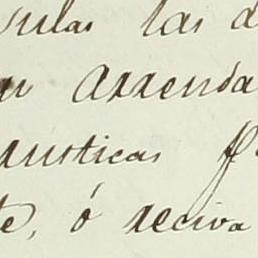 sulas las d
en Arrenda
rusticas f
te, ó reciva